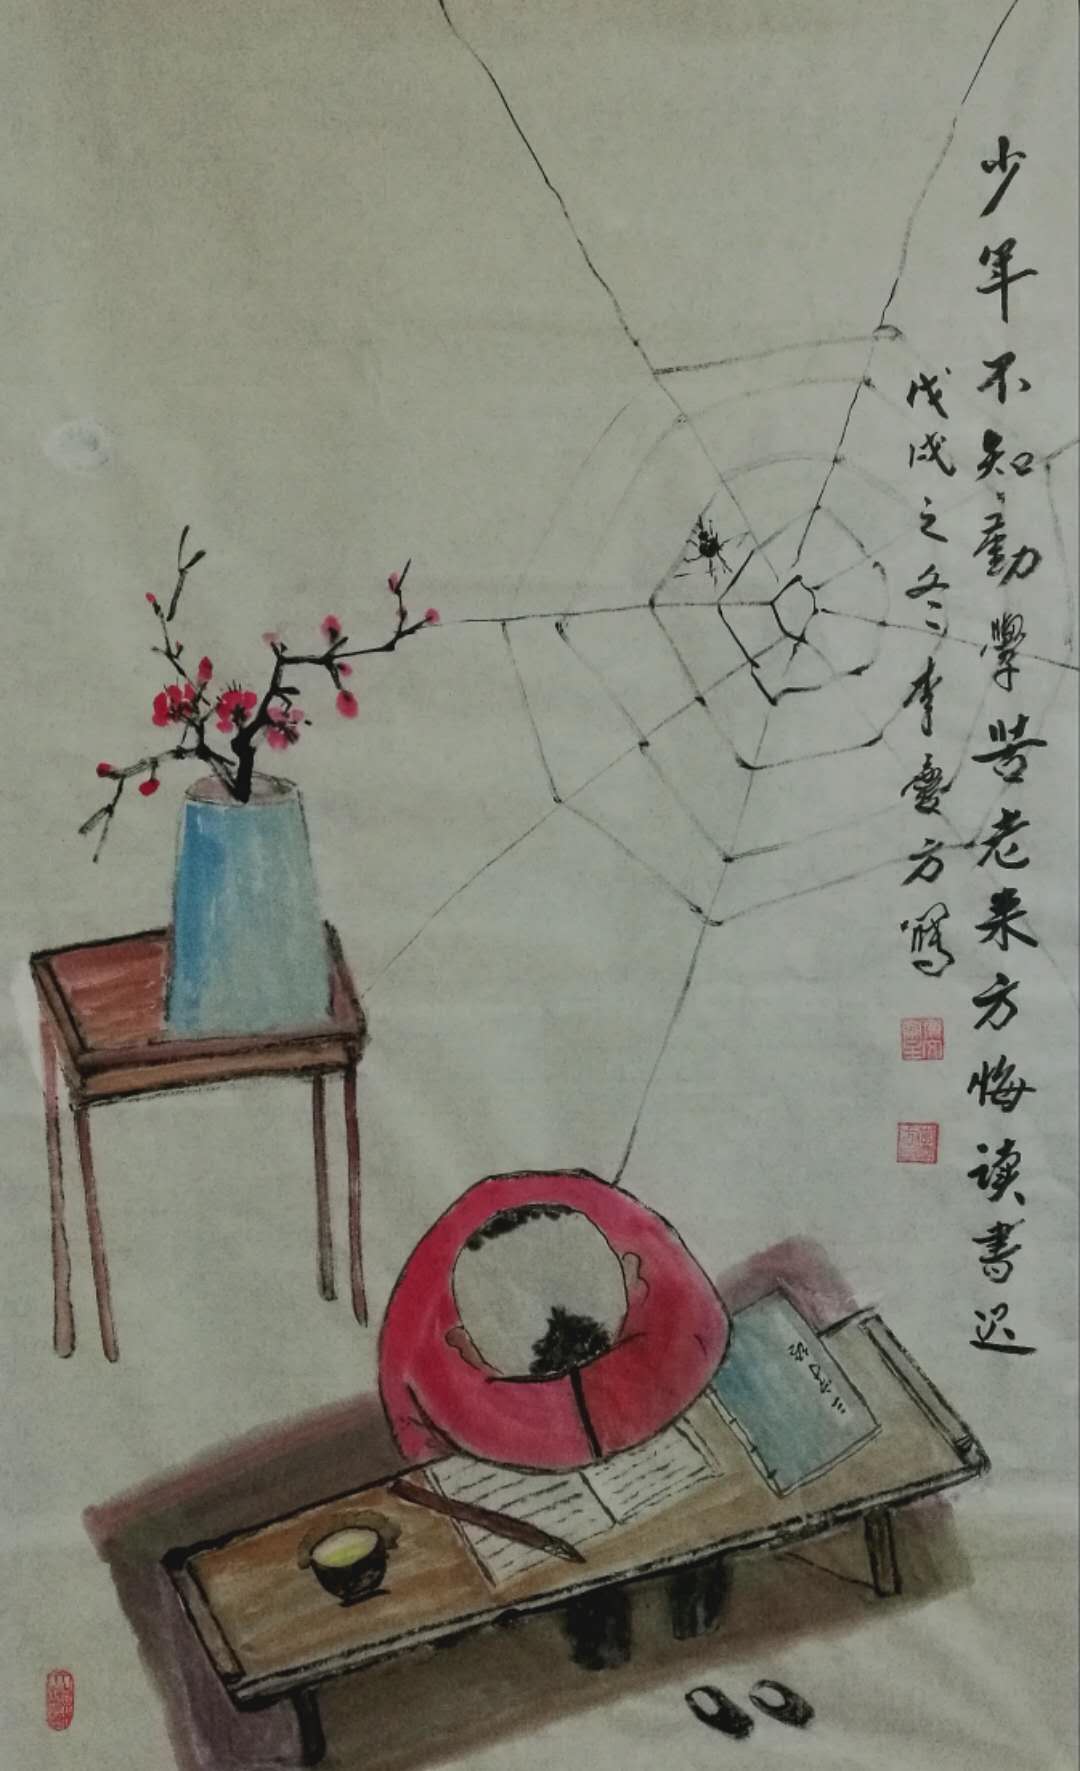 少年不知勤學苦老来方悔读書迟
戊戌之冬李慶方寫
三字经